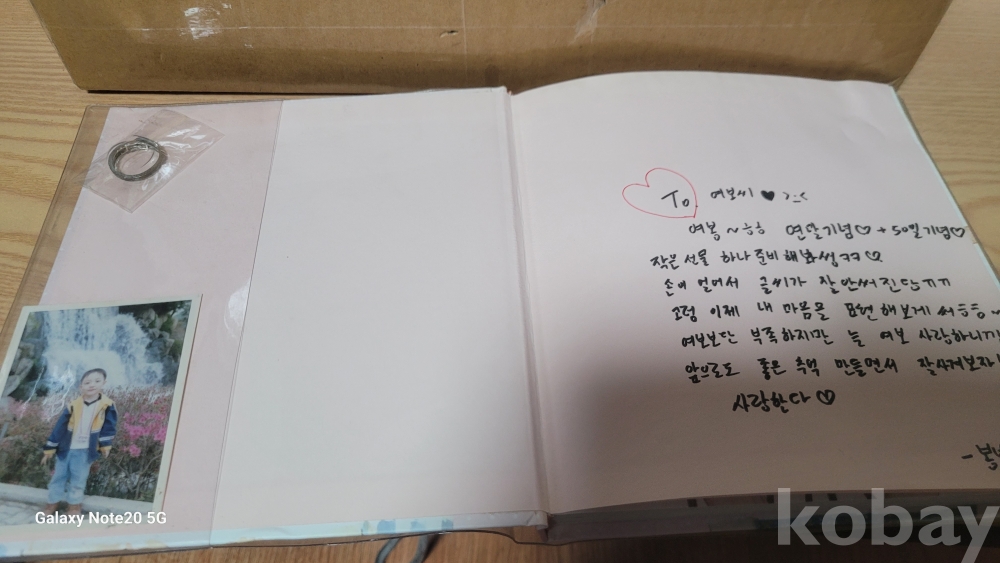 To 여보씨 ♥ >:<
여봉~ㅎㅎ 연말기념♡ + 50일기념♡
작은 선물 하나 준비해봐썽ㅋㅋ♡
손이 얼어서 글씨가 잘 안써진단ㅠㅠ
고럼 이제 내 마음을 표현해보게써ㅎㅎ
여보보단 부족하지만 늘 여보 사랑하니까
앞으로도 좋은 추억 만들면서 잘사겨보자
사랑한다♡
Galaxy Note20 5G
kobay